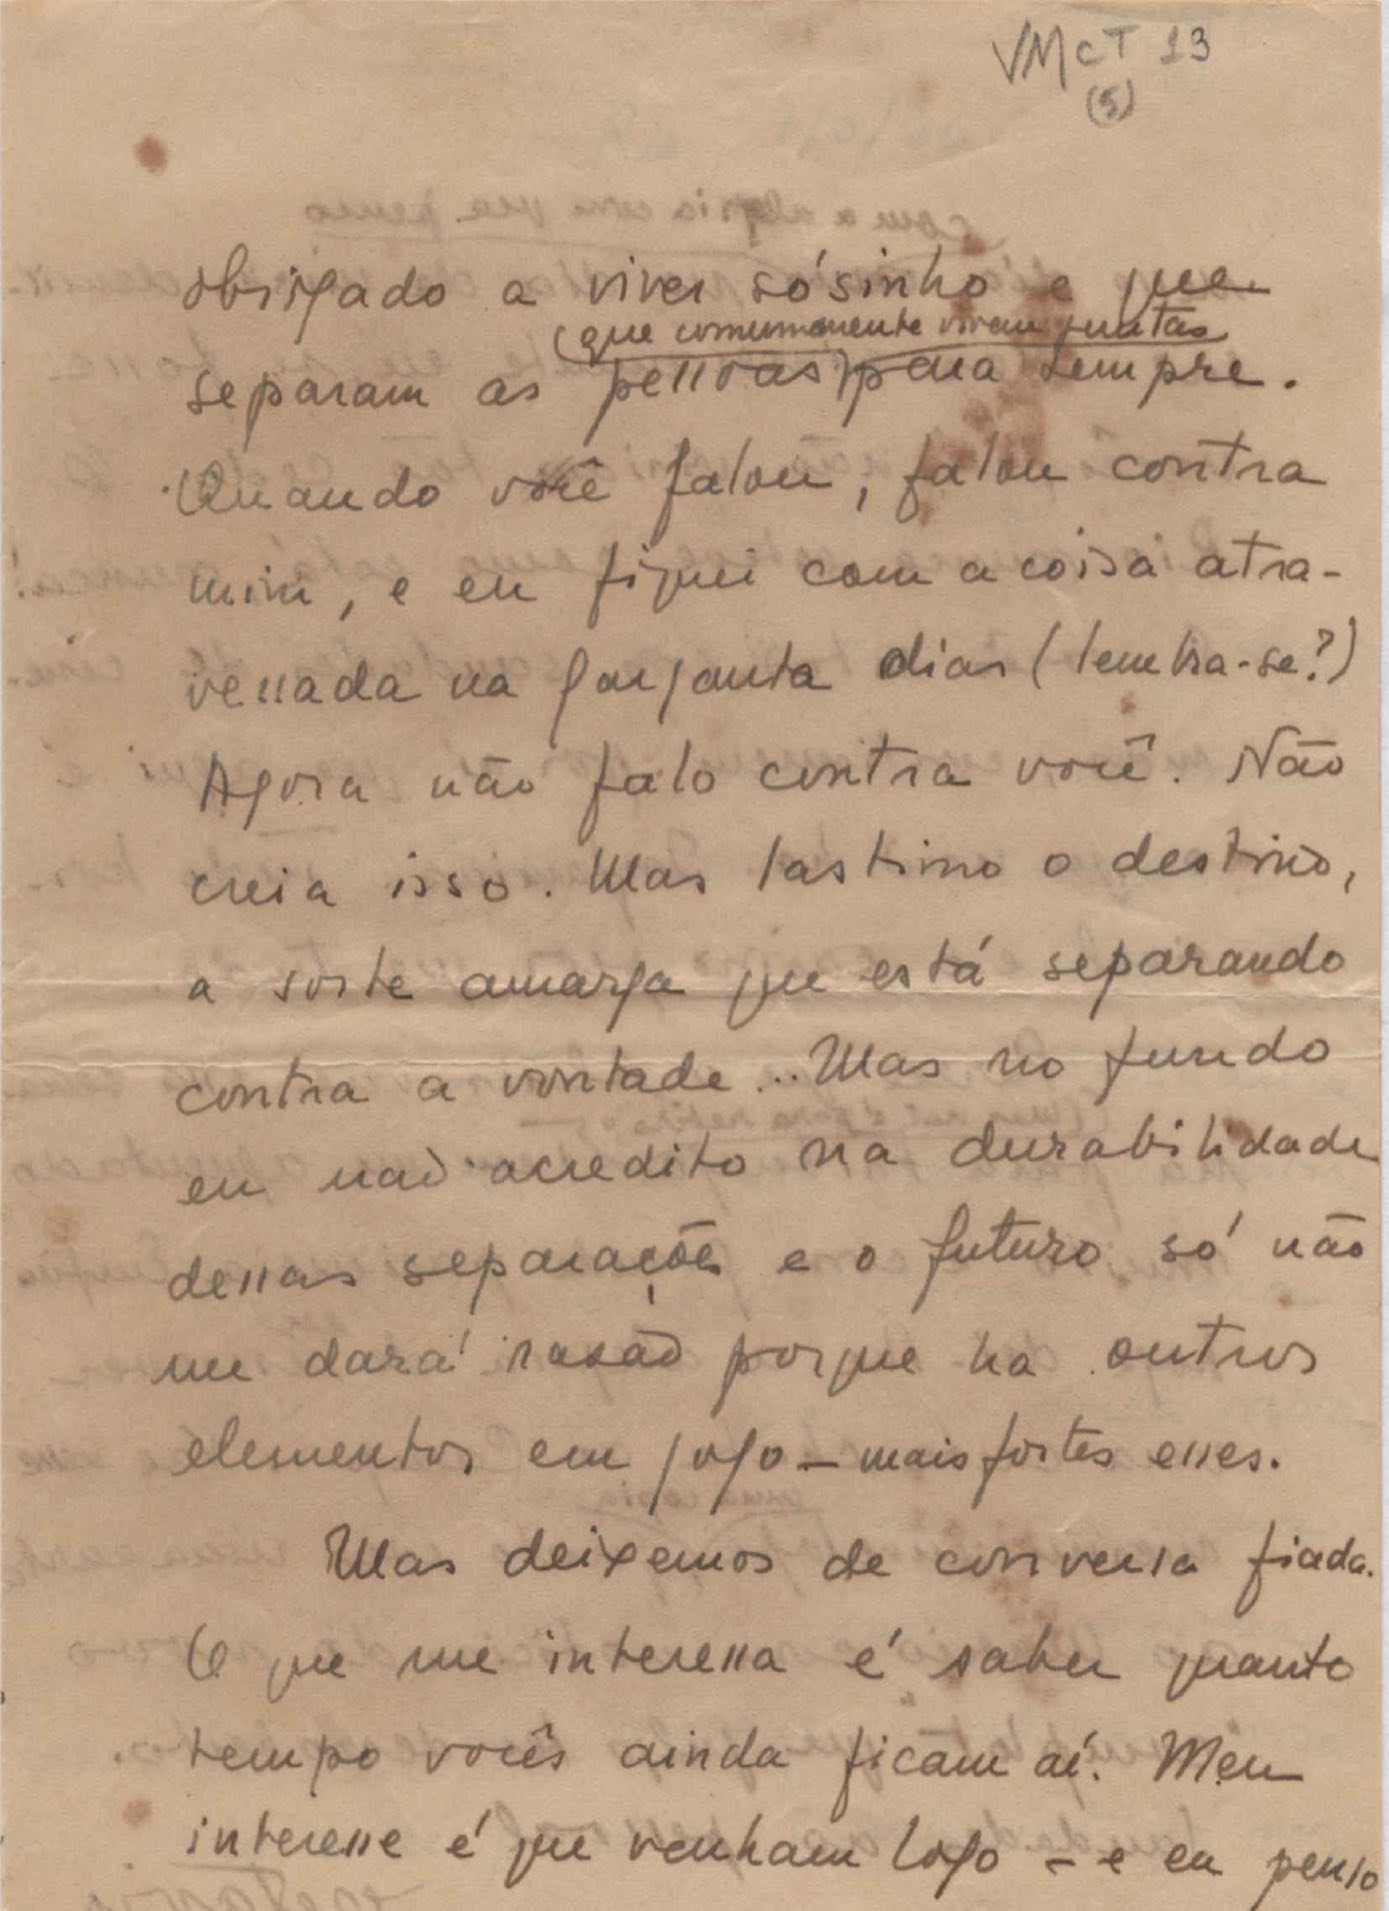 VMcT 13
(5)
obrigado a viver sósinho e que
(que comummente vivem juntas
separam as pessoas) para sempre.
Quando você falou, falou contra
mim, e eu fiquei com a coisa atra-
vessada na garganta dias (lembra-se?)
Agora não falo contra você. Não
creia isso. Mas lastimo o destino,
a sorte amarga que está separando
contra a vontade... Mas no fundo
eu não acredito na durabilidade
dessas separações e o futuro só não
me dará rasão porque ha outros
elementos em jogo – mais fortes esses.
Mas deixemos de conversa fiada.
O que me interessa é saber quanto
tempo vocês ainda ficam aí. Meu
interesse é que venham logo – e eu penso